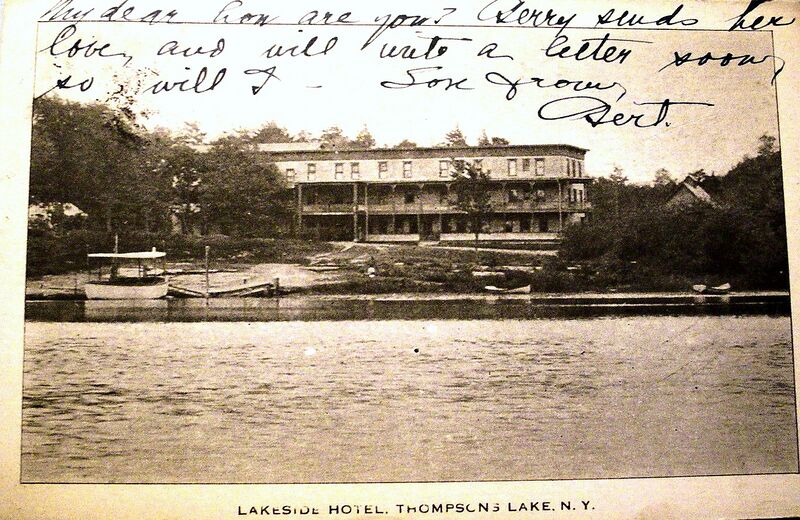 My dear how are you? Berry sends her
love, and will write a letter soon,
so will I - from,
Bert.
LAKESIDE HOTEL, THOMPSONS LAKE, N.Y.